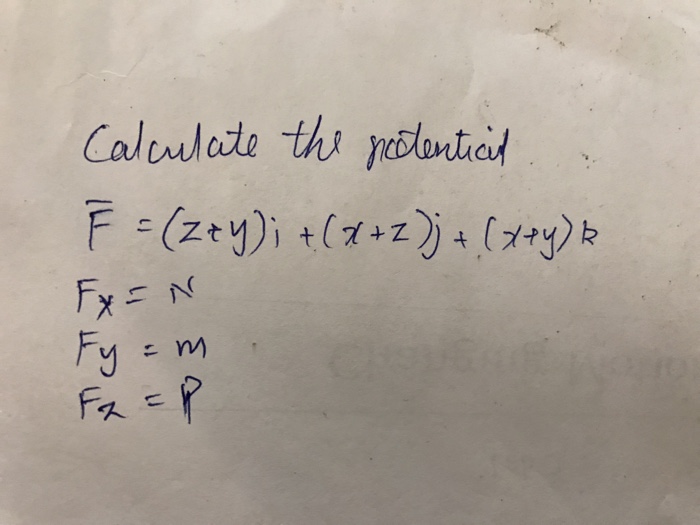 Calculate the potential
F̅ = (z+y)i + (x+z)j + (x+y)k
Fx = N
Fy = m
Fz = P